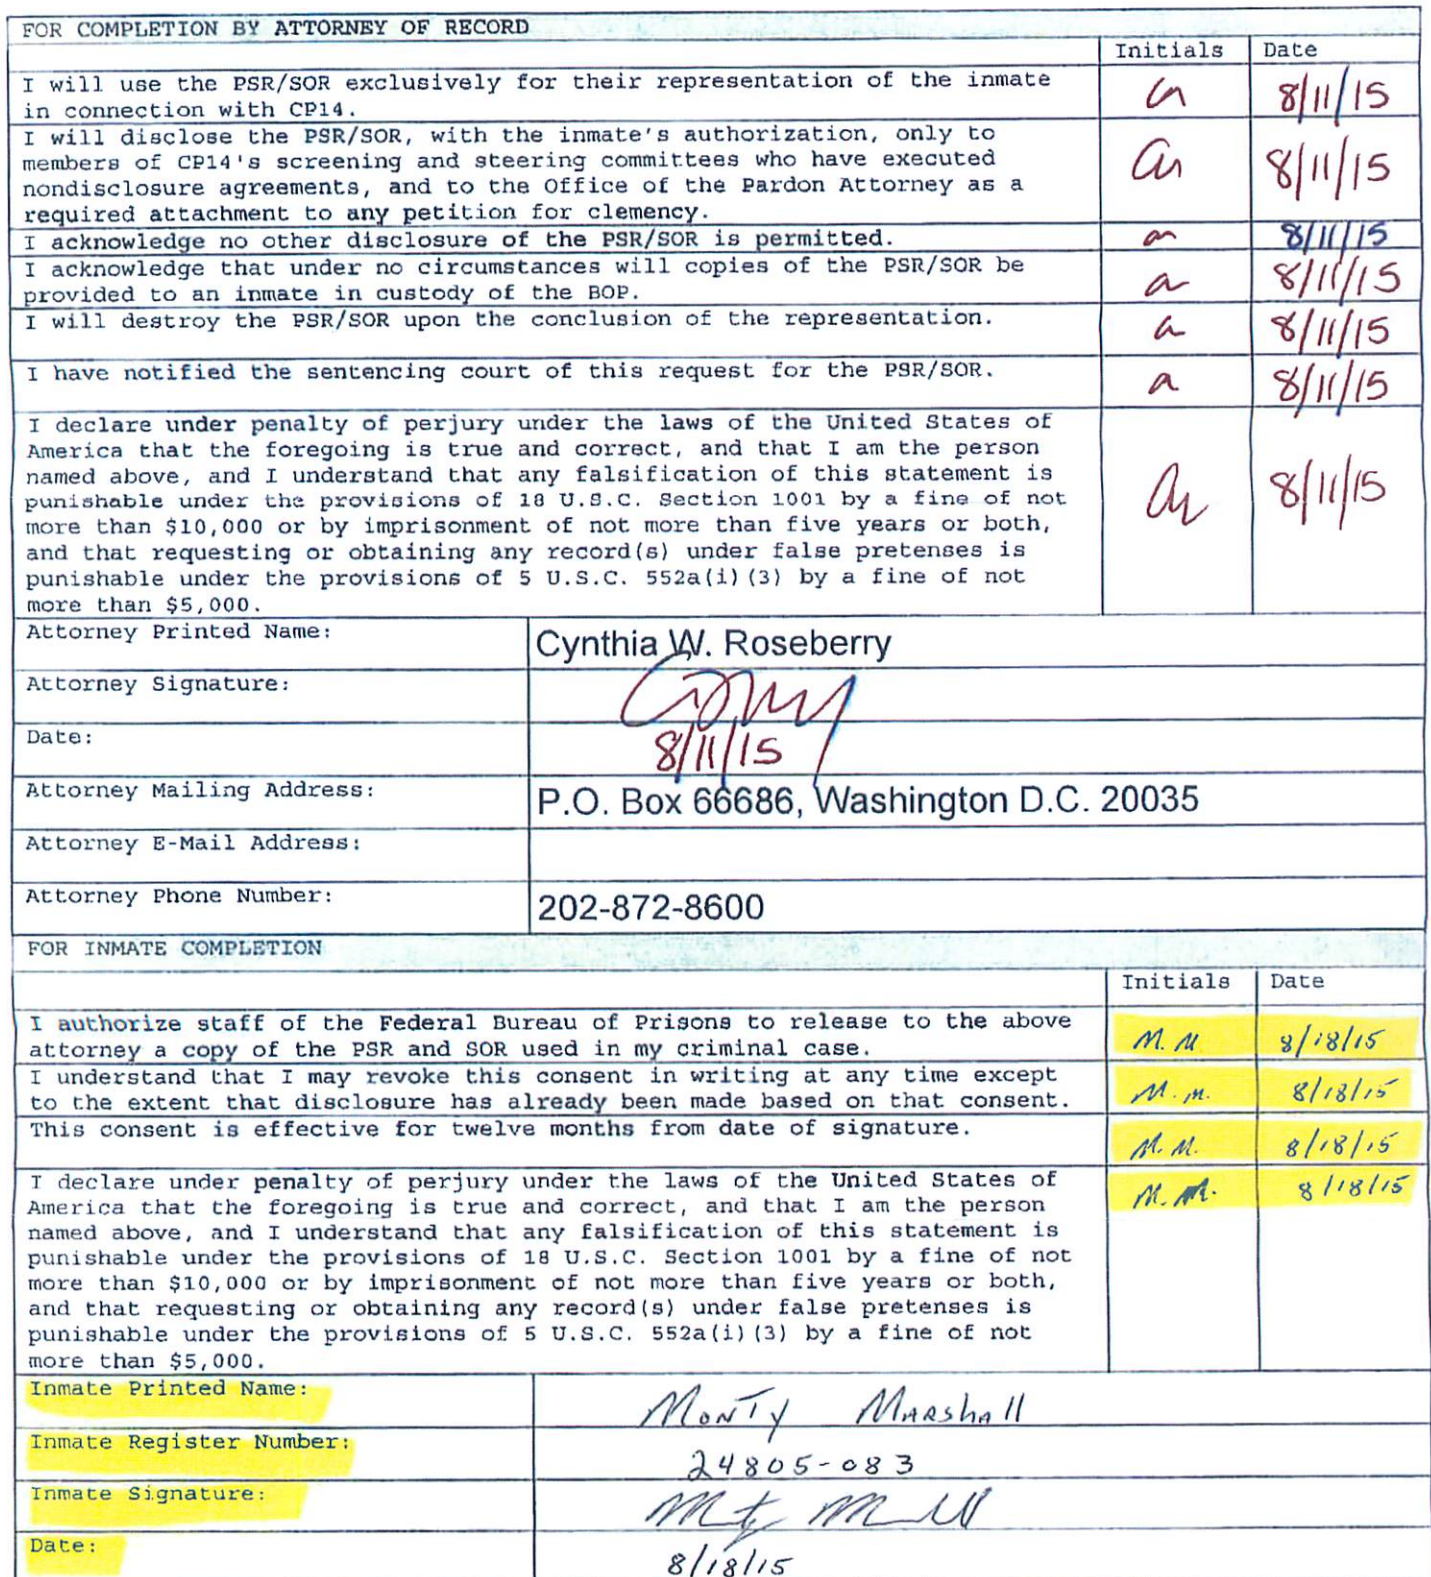 FOR COMPLETION BY ATTORNEY OF RECORD
Initials Date
I will use the PSR/SOR exclusively for their representation of the inmate
in connection with CP14. 8/11/15
I will disclose the PSR/SOR, with the inmate's authorization, only to
members of CP14's screening and steering committees who have executed
nondisclosure agreements, and to the Office of the Pardon Attorney as a
required attachment to any petition for clemency. 8/11/15
I acknowledge no other disclosure of the PSR/SOR is permitted. 8/11/15
I acknowledge that under no circumstances will copies of the PSR/SOR be
provided to an inmate in custody of the BOP. 8/11/15
I will destroy the PSR/SOR upon the conclusion of the representation. 8/11/15
I have notified the sentencing court of this request for the PSR/SOR. 8/11/15
I declare under penalty of perjury under the laws of the United States of
America that the foregoing is true and correct, and that I am the person
named above, and I understand that any falsification of this statement is
punishable under the provisions of 18 U.S.C. Section 1001 by a fine of not
more than $10,000 or by imprisonment of not more than five years or both,
and that requesting or obtaining any record(s) under false pretenses is
punishable under the provisions of 5 U.S.C. 552a(i)(3) by a fine of not
more than $5,000. 8/11/15
Attorney Printed Name: Cynthia W. Roseberry
Attorney Signature:
Date: 8/11/15
Attorney Mailing Address: P.O. Box 66686, Washington D.C. 20035
Attorney E-Mail Address:
Attorney Phone Number: 202-872-8600
FOR INMATE COMPLETION
Initials Date
I authorize staff of the Federal Bureau of Prisons to release to the above
attorney a copy of the PSR and SOR used in my criminal case. M.M 8/18/15
I understand that I may revoke this consent in writing at any time except
to the extent that disclosure has already been made based on that consent. M.M. 8/18/15
This consent is effective for twelve months from date of signature. M.M. 8/18/15
I declare under penalty of perjury under the laws of the United States of M.M. 8/18/15
America that the foregoing is true and correct, and that I am the person
named above, and I understand that any falsification of this statement is
punishable under the provisions of 18 U.S.C. Section 1001 by a fine of not
more than $10,000 or by imprisonment of not more than five years or both,
and that requesting or obtaining any record(s) under false pretenses is
punishable under the provisions of 5 U.S.C. 552a(i)(3) by a fine of not
more than $5,000.
Inmate Printed Name: Monty Marshall
Inmate Register Number: 24805-083
Inmate Signature:
Date: 8/18/15